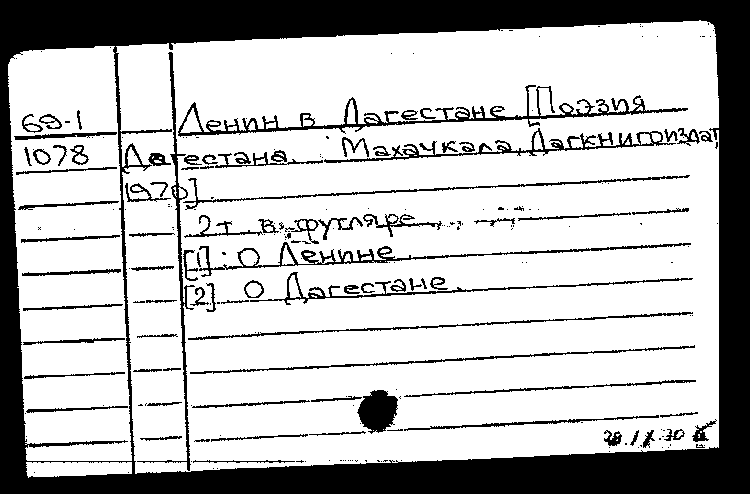 69-1 Ленин в Дагестане. [Поэзия
1078 Дагестана. Махачкала, Дагкнигоиздат,
1970].
2т. в футляре
[1]: О Ленине.
[2] О Дагестане.